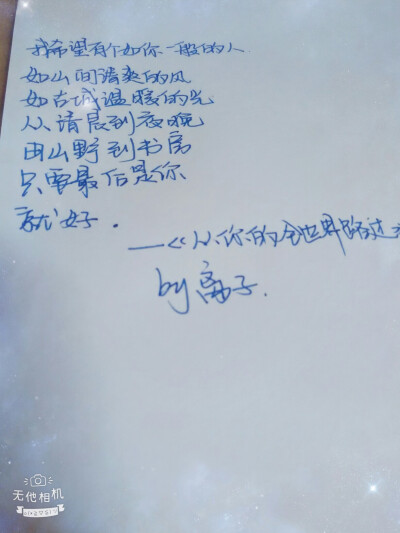 我希望有个如你一般的人
如山间清爽的风
如古城温暖的光
从清晨到夜晚
由山野到书房
只要最后是你
就好.
——《从你的全世界路过
by离子.
无他相机